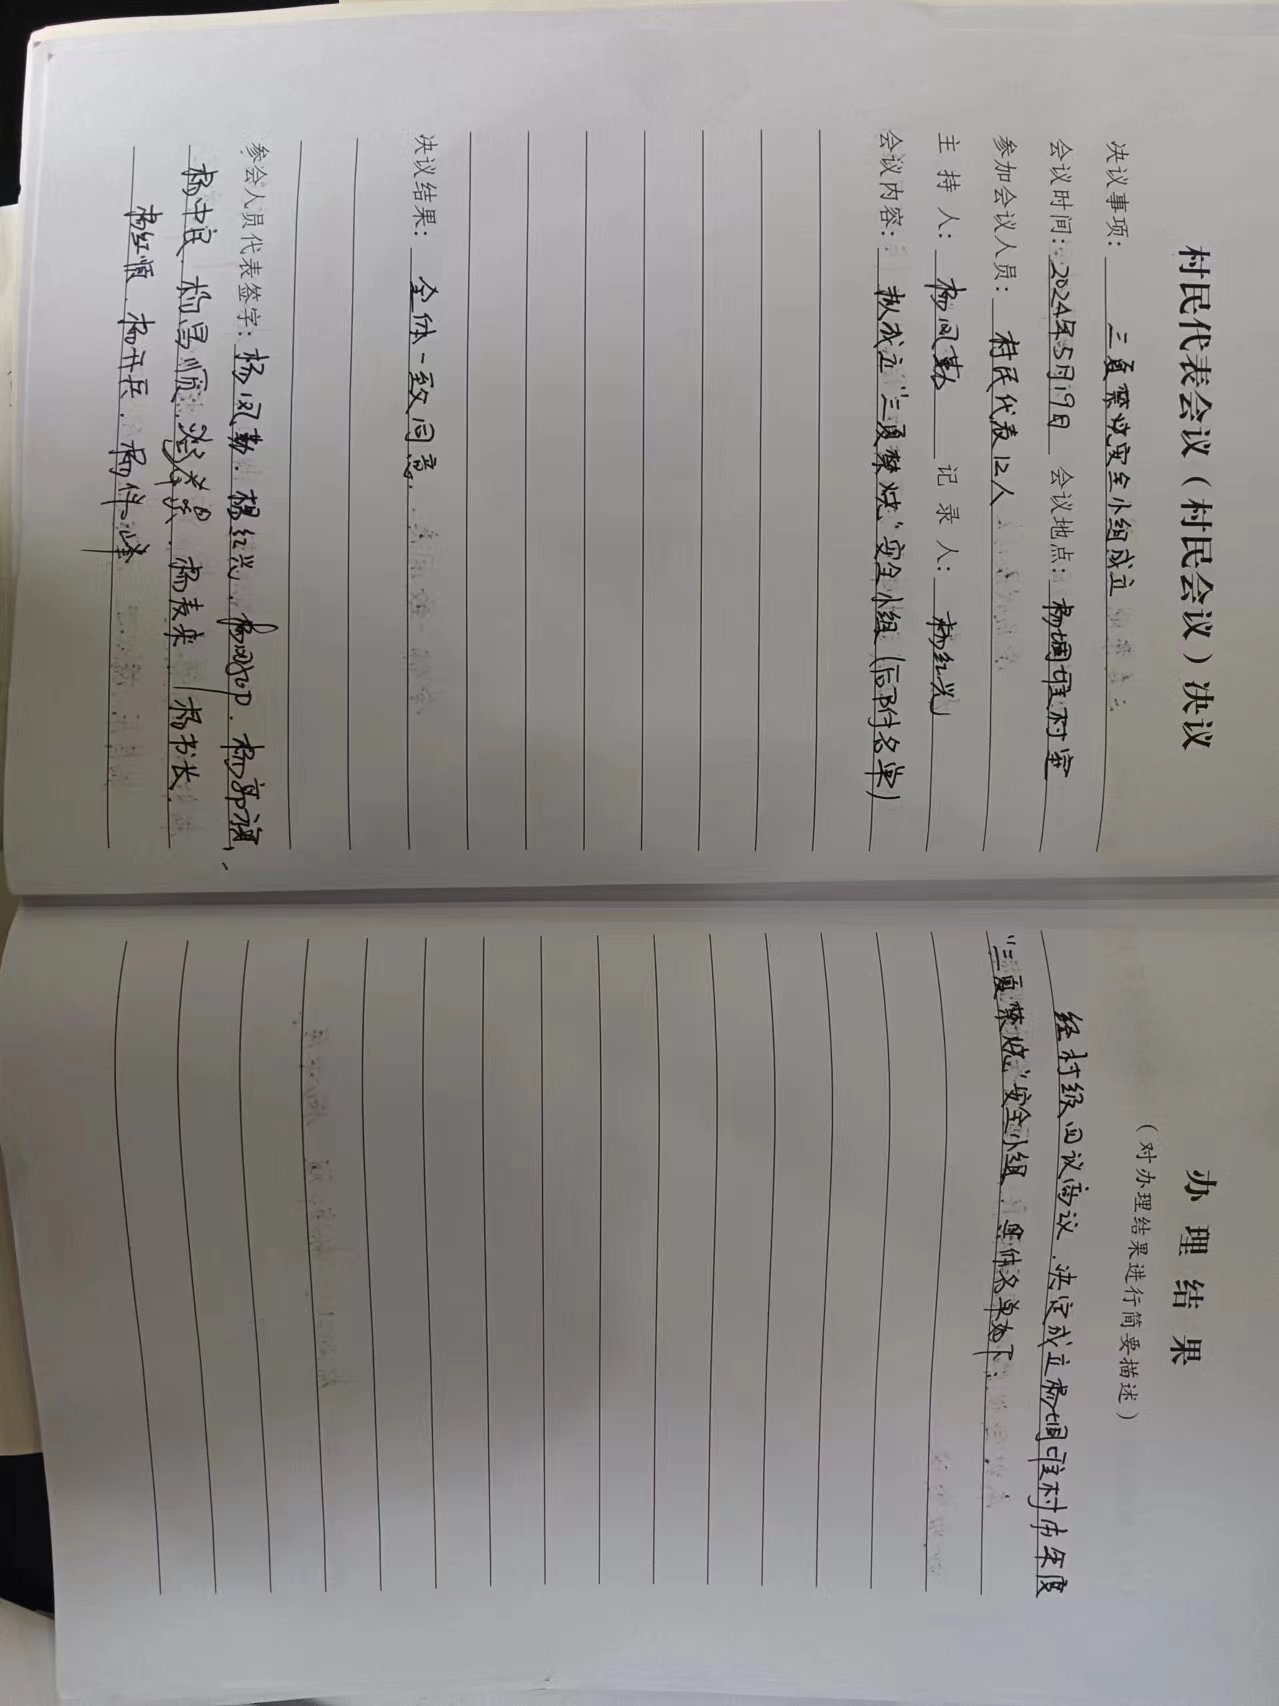 村民代表会议（村民会议）决议
决议事项： 三夏禁烧安全小组成立
会议时间：2024年5月19日 会议地点：杨堌堆村室
参加会议人员： 村民代表12人
主 持 人： 杨凤勤 记 录 人： 杨红兴
会议内容： 拟成立“三夏禁烧”安全小组（后附名单）
决议结果： 全体一致同意.
参会人员代表签字：杨凤勤. 杨红兴. 杨. 杨郭旗、
杨中良 杨昌顺 杨麦来 杨书长.
杨红恒. 杨开兵. 杨伴峰
办 理 结 果
（对办理结果进行简要描述）
经村级四议商议. 决定成立杨堌堆村本年度
“三夏禁烧”安全小组. 具体名单如下：